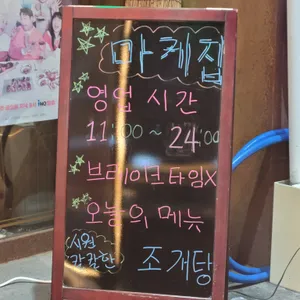 마케집
영업 시간
11:00 ~ 24:00
브레이크타임X
오늘의 메뉴
시원
칼칼한
조개탕